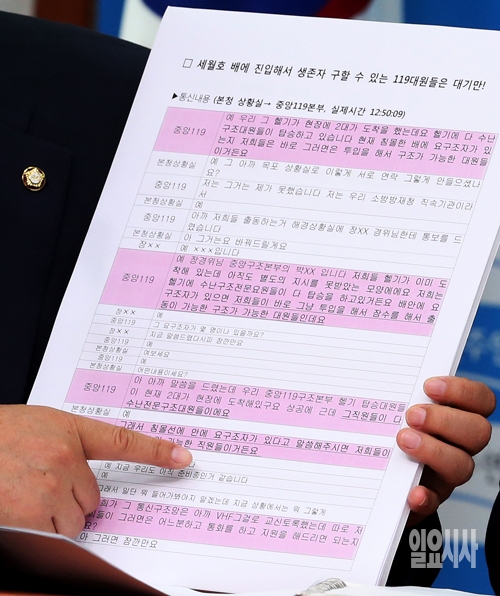 □ 세월호 배에 진입해서 생존자 구할 수 있는 119대원들은 대기만!
▶통신내용 (본청 상황실→ 중앙119본부, 실제시간 12:50:09)
중앙119 예 우리 그 헬기가 현장에 2대가 도착을 했는데요 헬기에 다 수난
구조대원들이 탑승하고 있습니다 현재 침몰한 배에 요구조자가 있
는지 저희들은 바로 그러면은 투입을 해서 구조가 가능한 대원들
이거든요
본청상황실 예 그 아까 목포 상황실로 이렇게 서로 연락 그렇게 안드으셨나
요?
중앙119 저는 그거는 제가 못했습니다 저는 우리 소방방재청 직속기관이라
서
본청상황실 예
중앙119 아까 저희들 출동하는거 해경상황실에 장XX 경위님한테 통보를 드
렸습니다
본청상황실 아 그거는요 바꿔드릴게요
장×× 예 ×××입니다
중앙119 예 장경위님 중앙구조본부의 박XX 입니다 저희들 헬기가 이미 도
착해 있는데 아직도 별도의 지시를 못받았는 모양에에요 저희는
헬기에 수난구조전문요원들이 다 탑승을 하고있거든요 배안에 요
구조자가 있으면 저희들이 바로 그냥 투입을 해서 잠수를 해서 출
동이 가능한 구조가 가능한 대원들인데요
장×× 예
중앙119 그 요구조자가 몇 명이나 있을까요?
장×× 지금 말씀드렸다시피 잠깐만요
중앙119 예
본청상황실 여보세요
중앙119 예
본청상황실 어떤내용이세요?
중앙119 아 아까 말씀을 드렸는데 우리 중앙119구조본부 헬기 탑승대원들
이 현재 2대가 현장에 도착해있구요 상공에 근데 그직원들이 다
수난전문구조대원들이에요
본청상황실 예
그래서 침몰선에 안에 요구조자가 있다고 말씀해주시면 저희들이
가능한 직원들이거든요
예 지금 우리도 아직 준비중인거 같습니다
예
그래서 일단 뭐 들어가봐야지 알겠는데 지금 상황에서는 뭐 그렇게
희가 그 통신구조망은 아까 VHF그걸로 교신토록했는데 따로 저
들이 그러면은 어느분하고 통화를 하고 지원을 해드리면 되는지
요?
아 그러면 잠깐만요
일요시사